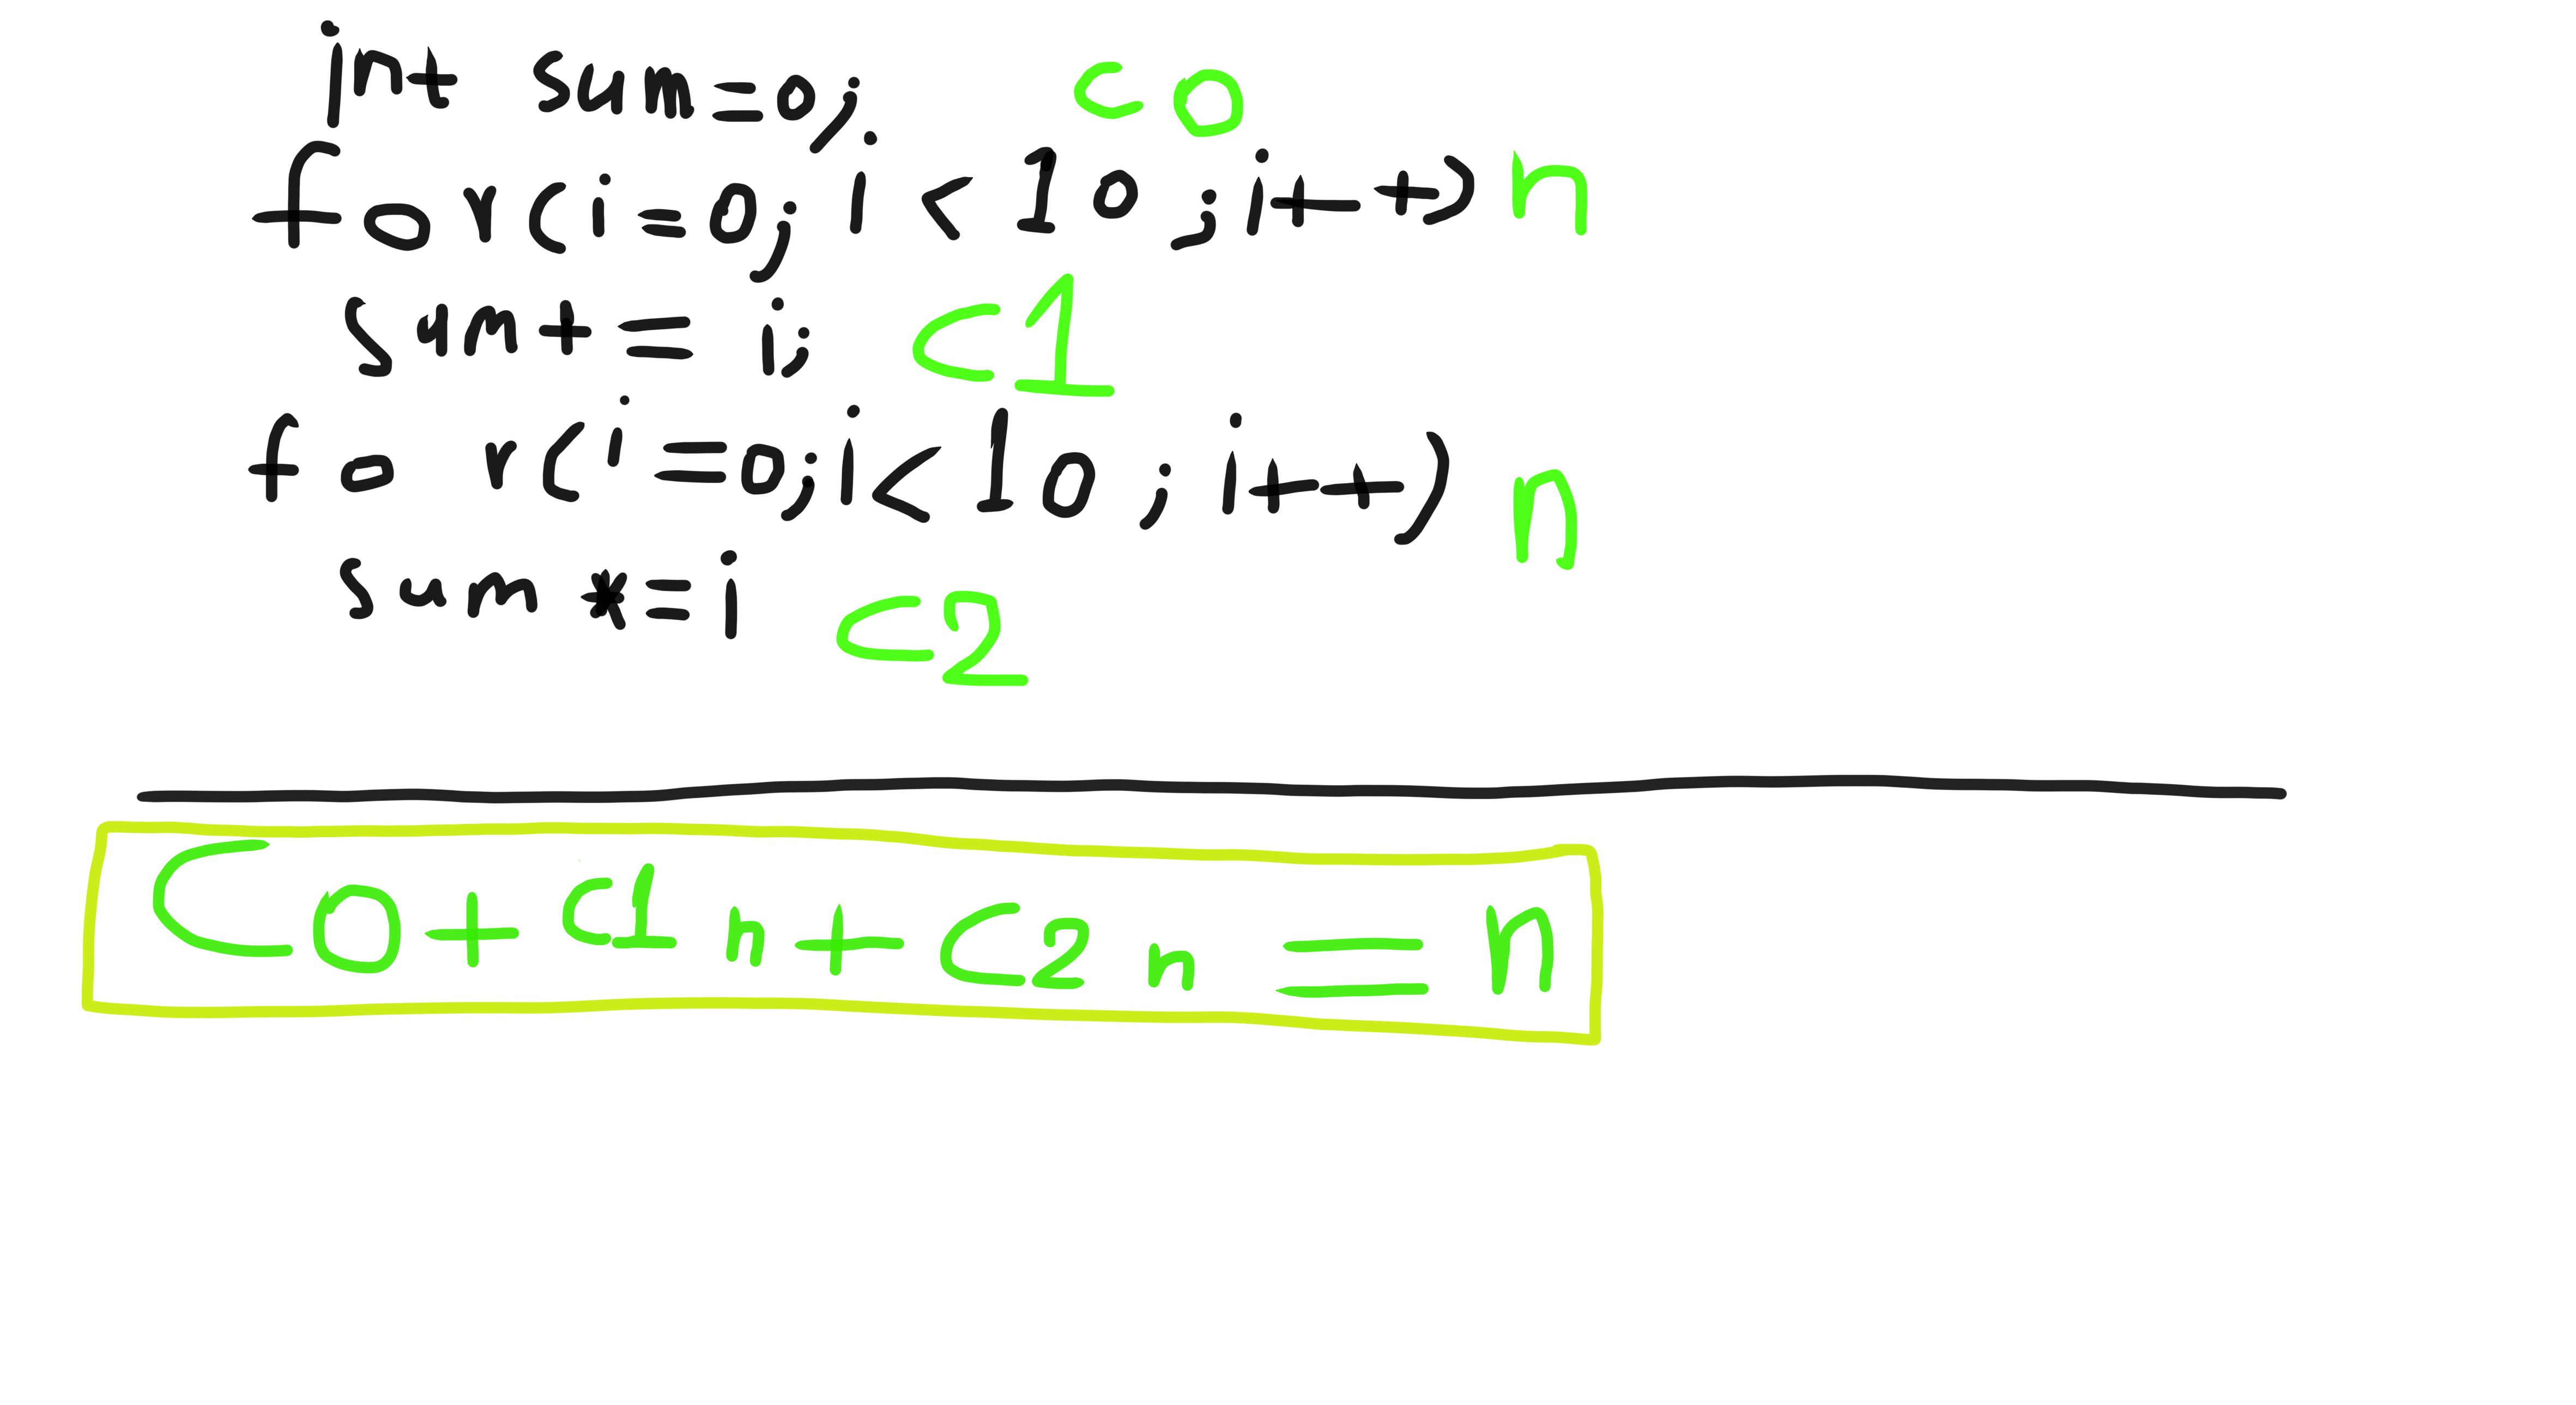 int sum=0; c0
for(i=0; i<10; i++) n
sum+= i; c1
for(i=0; i<10; i++) n
sum *=i c2
C0+C1n+C2n = n